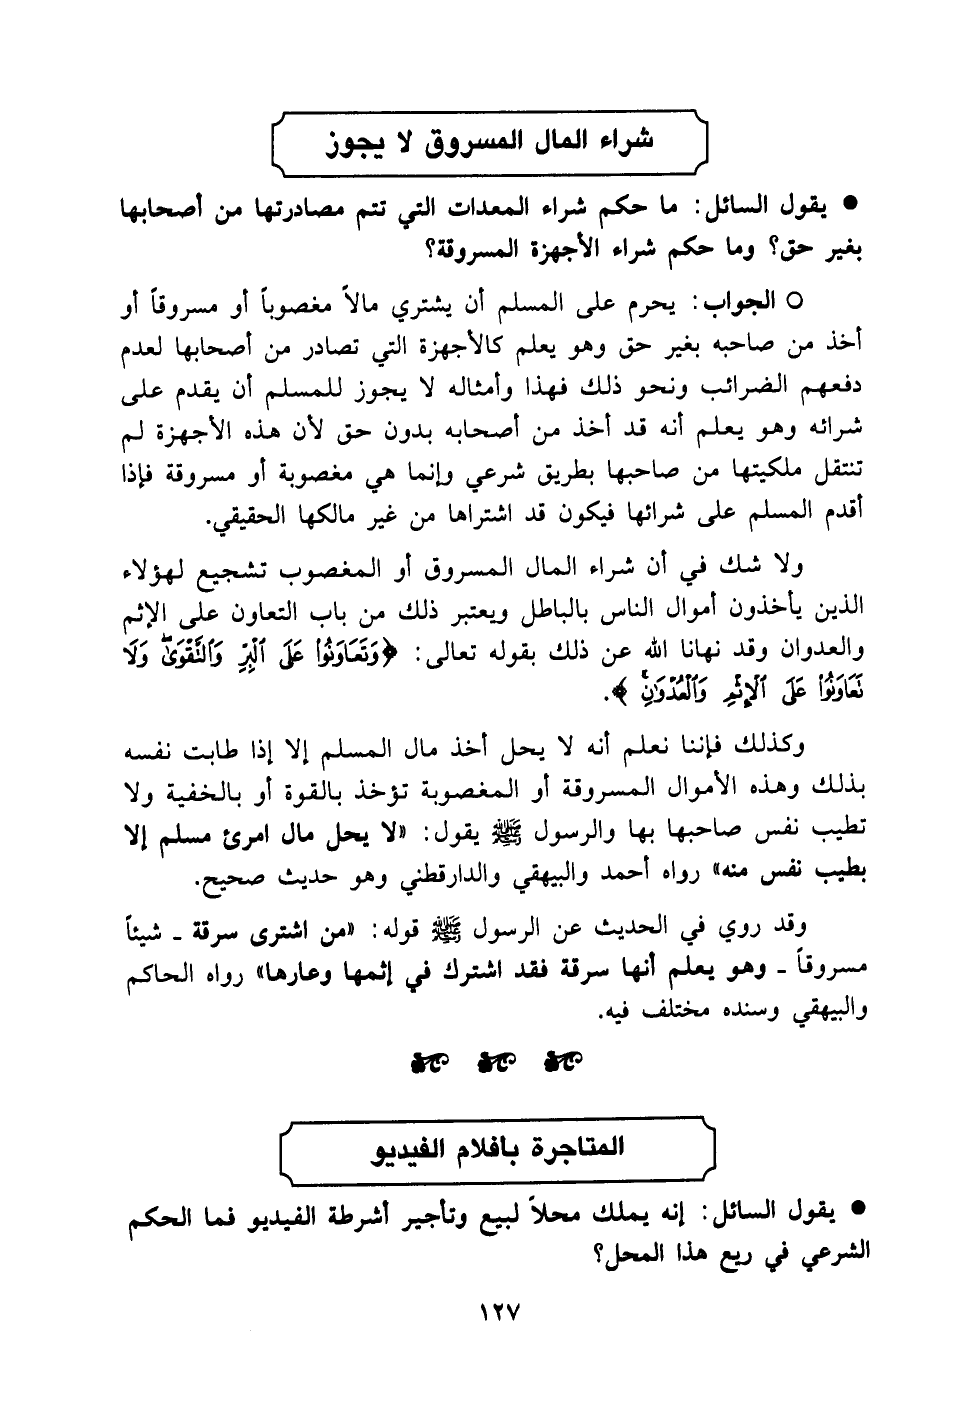 شراء المال المسروق لا يجوز
● يقول السائل: ما حكم شراء المعدات التي تتم مصادرتها من أصحابها
بغير حق؟ وما حكم شراء الأجهزة المسروقة؟
○ الجواب: يحرم على المسلم أن يشتري مالاً مغصوباً أو مسروقاً أو
أخذ من صاحبه بغير حق وهو يعلم كالأجهزة التي تصادر من أصحابها لعدم
دفعهم الضرائب ونحو ذلك فهذا وأمثاله لا يجوز للمسلم أن يقدم على
شرائه وهو يعلم أنه قد أخذ من أصحابه بدون حق لأن هذه الأجهزة لم
تنتقل ملكيتها من صاحبها بطريق شرعي وإنما هي مغصوبة أو مسروقة فإذا
أقدم المسلم على شرائها فيكون قد اشتراها من غير مالكها الحقيقي.
ولا شك في أن شراء المال المسروق أو المغصوب تشجيع لهؤلاء
الذين يأخذون أموال الناس بالباطل ويعتبر ذلك من باب التعاون على الإثم
والعدوان وقد نهانا الله عن ذلك بقوله تعالى: ﴿وَتَعَاوَنُوا۟ عَلَى ٱلْبِرِّ وَٱلتَّقْوَىٰۖ وَلَا
تَعَاوَنُوا۟ عَلَى ٱلْإِثْمِ وَٱلْعُدْوَٰنِۚ﴾.
وكذلك فإننا نعلم أنه لا يحل أخذ مال المسلم إلا إذا طابت نفسه
بذلك وهذه الأموال المسروقة أو المغصوبة تؤخذ بالقوة أو بالخفية ولا
تطيب نفس صاحبها بها والرسول ﷺ يقول: «لا يحل مال امرئ مسلم إلا
بطيب نفس منه» رواه أحمد والبيهقي والدارقطني وهو حديث صحيح.
وقد روي في الحديث عن الرسول ﷺ قوله: «من اشترى سرقة ـ شيئاً
مسروقاً ـ وهو يعلم أنها سرقة فقد اشترك في إثمها وعارها» رواه الحاكم
والبيهقي وسنده مختلف فيه.
المتاجرة بأفلام الفيديو
● يقول السائل: إنه يملك محلاً لبيع وتأجير أشرطة الفيديو فما الحكم
الشرعي في ريع هذا المحل؟
١٢٧